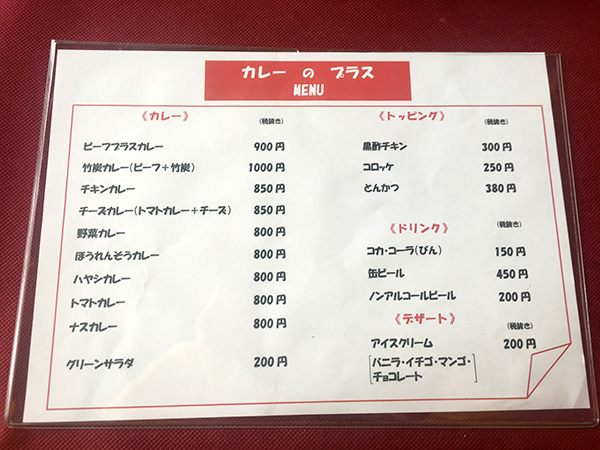 カレー の プラス
MENU
《カレー》 (税抜き)
ビーフプラスカレー 900円
竹炭カレー(ビーフ+竹炭) 1000円
チキンカレー 850円
チーズカレー(トマトカレー+チーズ) 850円
野菜カレー 800円
ほうれんそうカレー 800円
ハヤシカレー 800円
トマトカレー 800円
ナスカレー 800円
グリーンサラダ 200円
《トッピング》 (税抜き)
黒酢チキン 300円
コロッケ 250円
とんかつ 380円
《ドリンク》 (税抜き)
コカ・コーラ(びん) 150円
缶ビール 450円
ノンアルコールビール 200円
《デザート》 (税抜き)
アイスクリーム 200円
[バニラ・イチゴ・マンゴ・
チョコレート]